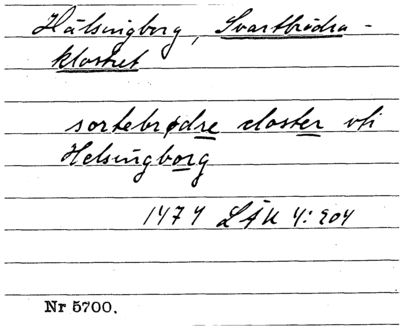 Hälsingborg, Svartbrödra-
klostret
sortebrødre closter vti
Helsingborg
1474 LÄU 4:204
Nr 5700.